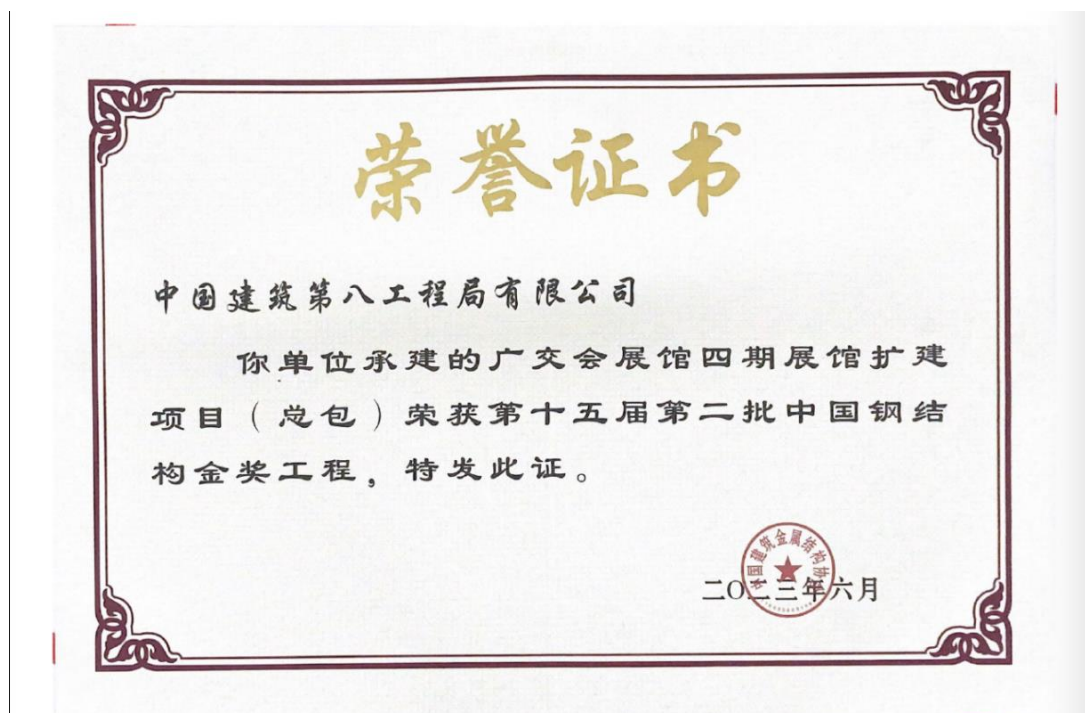 荣誉证书
中国建筑第八工程局有限公司
你单位承建的广交会展馆四期展馆扩建
项目（总包）荣获第十五届第二批中国钢结
构金奖工程，特发此证。
中国建筑金属结构协会
二〇二三年六月